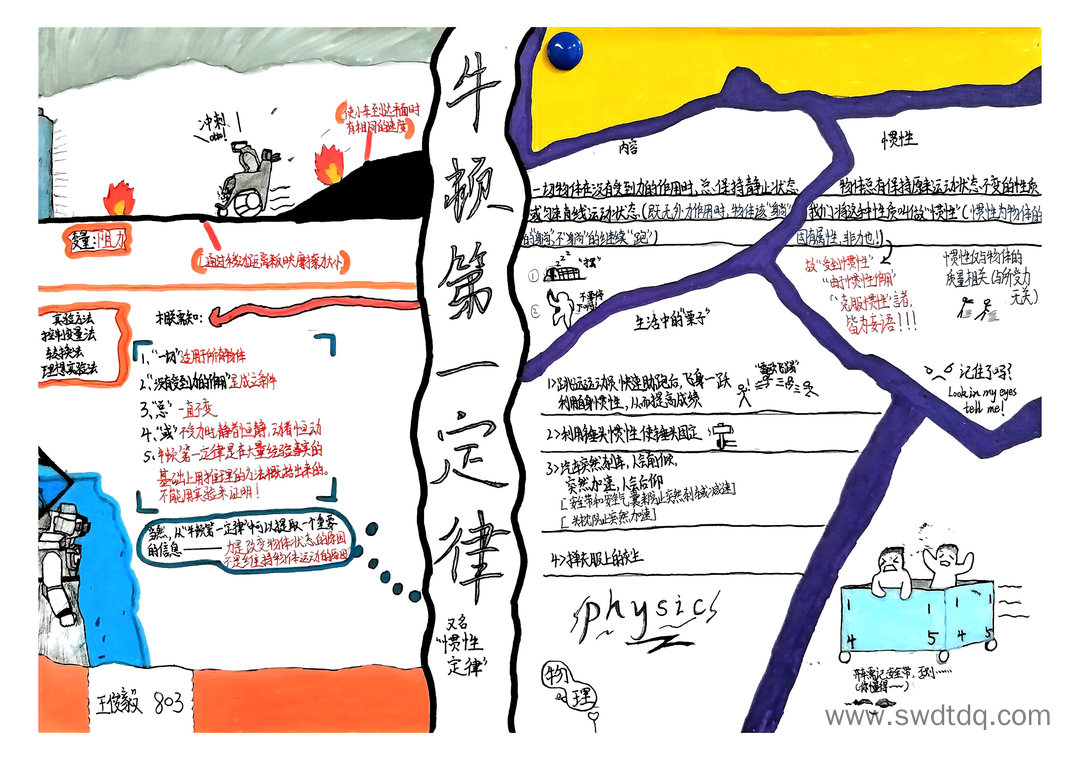 牛顿第一定律
又名
"惯性
定律"
冲刺！
使小车到达平面时
有相同的速度
变量：阻力
实验方法
控制变量法
转换法
理想实验法
相联知识：
1、"一切"适用于所有物体
2、"没有受到力的作用"是成立条件
3、"总"一直不变
4、"或"不受力时，静者恒静，动者恒动
5、牛顿第一定律是在大量经验事实的
基础上用推理的方法概括出来的。
不能用实验来证明！
当然，从"牛顿第一定律"中可以提取一个重要
的信息——力是改变物体状态的原因
不是维持物体运动的原因
王俊毅 803
内容
一切物体在没有受到力的作用时，总保持静止状态
或匀速直线运动状态（既无外力作用时，物体该"躺"
的"躺"，不"躺"的继续"跑"）
①
②
zzz
惯性
物体总有保持原来运动状态不变的性质
我们将这种性质叫做"惯性"（惯性为物体的
固有属性，非力也！）
故"受到惯性"
"由于惯性作用"
"克服惯性"言者，
皆为妄语！！！
惯性仅与物体的
质量相关（与所受力
无关）
生活中的"栗子"
1>跳远运动员快速助跑后，飞身一跃
利用自身惯性，从而提高成绩
2>利用锤头惯性使锤头固定
3>汽车突然刹车，人会前倾，
突然加速，人会后仰
[安全带和安全气囊来防止突然刹车或减速]
[头枕防止突然加速]
4>掸衣服上的灰尘
记住了吗？
Look in my eyes
tell me!
physics
物理
4 5 4 5
开车莫忘记安全带，否则……
（你懂得~）
www.swdtdq.com